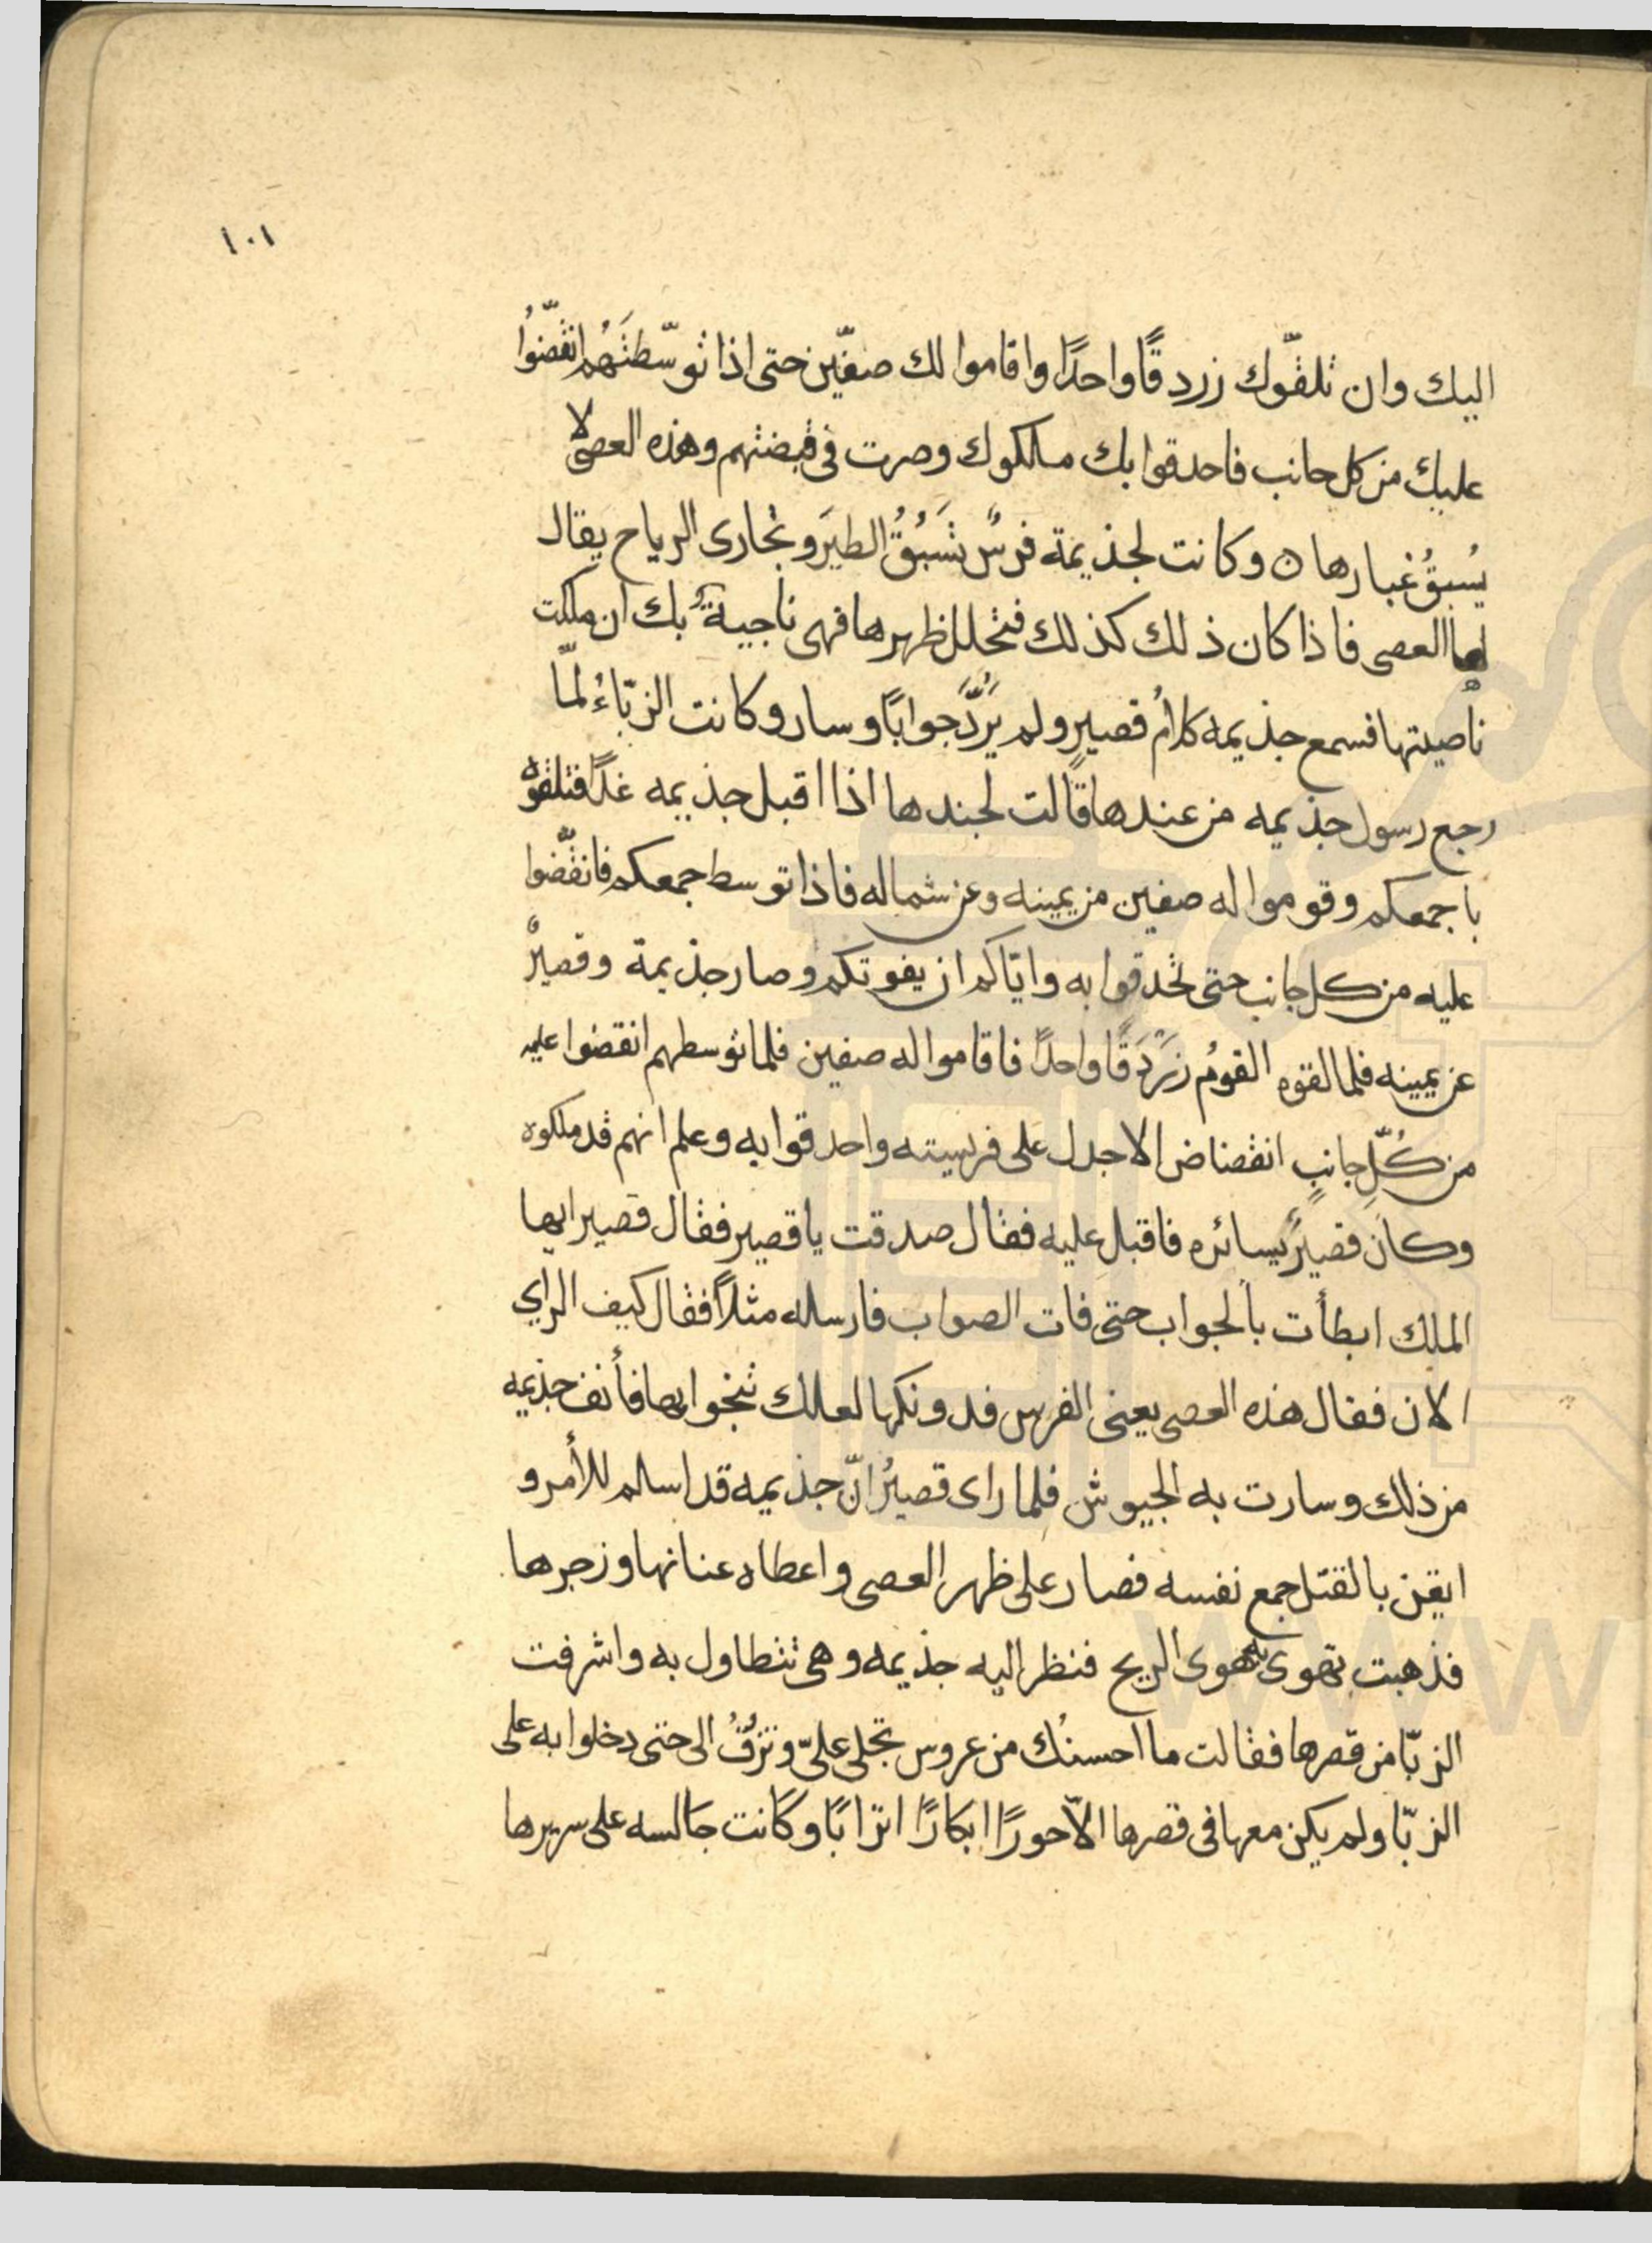 ١٠١
اليك وان تلقّوك زردقًا واحدًا واقاموا لك صفّين حتى اذا توسّطتَهُم انقضّوُا
عليك من كل جانب فاحدقوا بك ملكوك وصرت فى قبضتهم وهذه العصى لا
يُسبقُ غبارها ٥ وكانت لجذيمة فرسٌ تَسبُقُ الطيرَ وتجارى الرياح يقال
لها العصى فاذا كان ذلك كذلك فتجلل ظهرها فهى ناجيةٌ بك ان ملكت
ناصيتها فسمع جذيمه كلامُ قصيرٍ ولم يَرُدَّ جوابًا وسار وكانت الزبّاءُ لمّا
رجع رسول جذيمه من عندها قالت لجندها اذا اقبل جذيمه غدًا فتلقوه
باجمعكم وقوموا له صفين من يمينه وعن شماله فاذا توسط جمعكم فانقضّوا
عليه من كل جانب حتى تحدقوا به وايّاكم ان يفوتكم وصار جذيمة وقصيرٌ
عن يمينه فلما لقوه القومُ زَرْدَقًا واحدًا فاقاموا له صفين فلما توسطهم انقضوا عليه
من كُلّ جانبٍ انقضاض الاجدل على فريسته واحدقوا به وعلم انهم قد ملكوه
وكان قصيرٌ يسائره فاقبل عليه فقال صدقت يا قصير فقال قصير ايها
الملك ابطأت بالجواب حتى فات الصواب فارسله مثلاً فقال كيف الراي
الان فقال هذه العصى يعنى الفرس فدونكها لعلك تنجوا بها فأنف جذيمه
من ذلك وسارت به الجيوش فلما راى قصيرٌ انّ جذيمه قد اسلم للأمر و
ايقن بالقتل جمع نفسه فصار على ظهر العصى واعطاه عنانها وزجرها
فذهبت تهوى به هوى الريح فنظر اليه جذيمه وهى تتطاول به واشرفت
الزبّا من قصرها فقالت ما احسنُك من عروس تجلى علىّ وتزفُّ الى حتى دخلوا به على
الزبّا ولم يكن معها فى قصرها الاّ حورًا ابكارًا اترابًا وكانت جالسه على سريرها